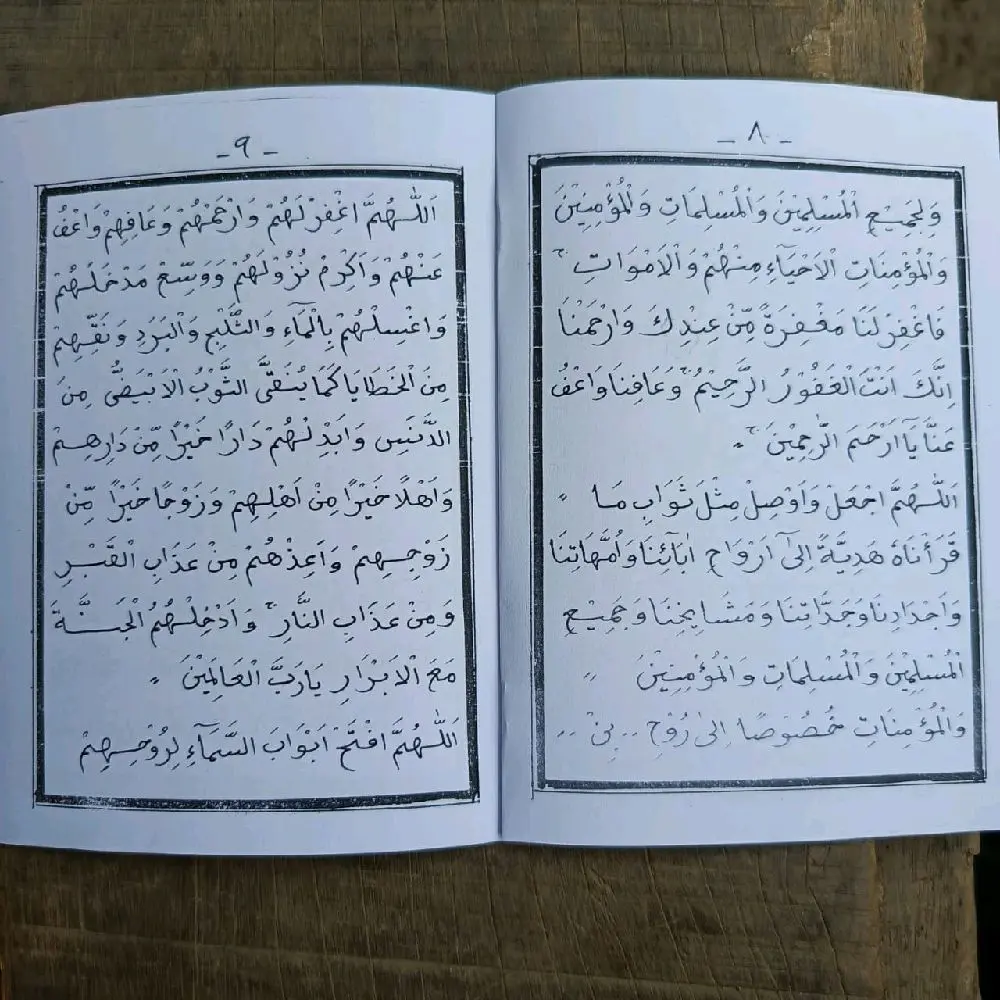 - ٨ -
وَلِجَمِيْعِ الْمُسْلِمِيْنَ وَالْمُسْلِمَاتِ وَالْمُؤْمِنِيْنَ
وَالْمُؤْمِنَاتِ الْاَحْيَآءِ مِنْهُمْ وَالْاَمْوَاتِ
فَاغْفِرْلَنَا مَغْفِرَةً مِّنْ عِنْدِكَ وَارْحَمْنَا
اِنَّكَ اَنْتَ الْغَفُوْرُ الرَّحِيْمُ وَعَافِنَا وَاعْفُ
عَنَّا يَآ اَرْحَمَ الرّٰحِمِيْنَ
اَللّٰهُمَّ اجْعَلْ وَاَوْصِلْ مِثْلَ ثَوَابِ مَا
قَرَأْنَاهُ هَدِيَّةً اِلىَٓ اَرْوَاحِ اٰبَآئِنَا وَاُمَّهَاتِنَا
وَاَجْدَادِنَا وَجَدَّاتِنَا وَمَشَايِخِنَا وَجَمِيْعِ
الْمُسْلِمِيْنَ وَالْمُسْلِمَاتِ وَالْمُؤْمِنِيْنَ
وَالْمُؤْمِنَاتِ خُصُوْصًا اِلىٰ رُوْحِ .. بِنْ ..
- ٩ -
اَللّٰهُمَّ اغْفِرْلَهُمْ وَارْحَمْهُمْ وَعَافِهِمْ وَاعْفُ
عَنْهُمْ وَاَكْرِمْ نُزُوْلَهُمْ وَوَسِّعْ مَدْخَلَهُمْ
وَاغْسِلْهُمْ بِالْمَآءِ وَالثَّلْجِ وَالْبَرَدِ وَنَقِّهِمْ
مِنَ الْخَطَايَا كَمَا يُنَقَّى الثَّوْبُ الْاَبْيَضُ مِنَ
الدَّنَسِ وَابْدِلْهُمْ دَارًا خَيْرًا مِّنْ دَارِهِمْ
وَاَهْلًا خَيْرًا مِنْ اَهْلِهِمْ وَزَوْجًا خَيْرًا مِّنْ
زَوْجِهِمْ وَاَعِذْهُمْ مِنْ عَذَابِ الْقَبْرِ
وَمِنْ عَذَابِ النَّارِ وَاَدْخِلْهُمُ الْجَنَّةَ
مَعَ الْاَبْرَارِ يَارَبَّ الْعَالَمِيْنَ
اَللّٰهُمَّ افْتَحْ اَبْوَابَ السَّمَآءِ لِرُوْحِهِمْ